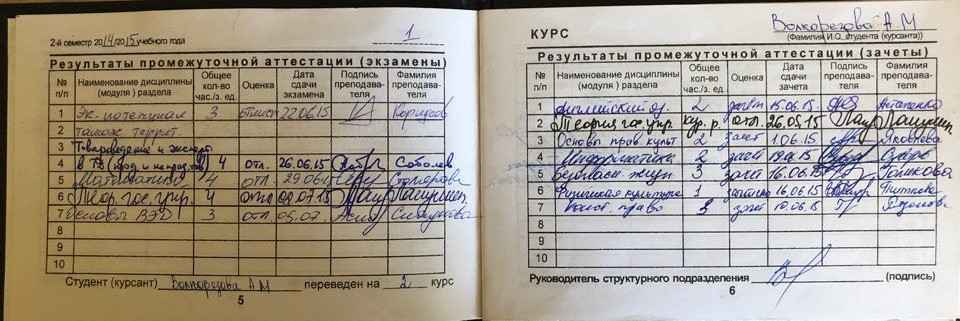 2-й семестр 2014/2015 учебного года 1
Результаты промежуточной аттестации (экзамены)
№ п/п Наименование дисциплины (модуля) раздела Общее кол-во час./з. ед. Оценка Дата сдачи экзамена Подпись преподава-теля Фамилия преподава-теля
1 Эк. потенциал 3 отлич 22.06.15
2 тамож. террит.
3 Товароведение и эксперт.
4 в ТД (прод и непрод) 4 отл. 26.06.15 Соболев
5 Математика 4 отл. 29.06
6 Теор. гос. упр. 4 отл 02.07.15
7 Основы ВЭД 3 отл 05.07.
8
9
10
Студент (курсант) Волкорезова А М переведен на 2 курс
5
КУРС Волкорезова А. М
(Фамилия И.О. студента (курсанта))
Результаты промежуточной аттестации (зачеты)
№ п/п Наименование дисциплины (модуля) раздела Общее кол-во час./з. ед. Оценка Дата сдачи зачета Подпись преподава-теля Фамилия преподава-теля
1 Английский яз. 2 зачет 15.06.15.
2 Теория гос. упр. кур. р. отл. 26.05.15
3 Основы прав. культ 2 зачет 1.06.15 Яковлева
4 Информатика 2 зачет
5 Безопасн. жизн 3 зачет 16.06.15
6 Физическая культура 1 зачтено 16.06.15
7 Конст. право 3 зачет 10.06.15
8
9
10
Руководитель структурного подразделения (подпись)
6